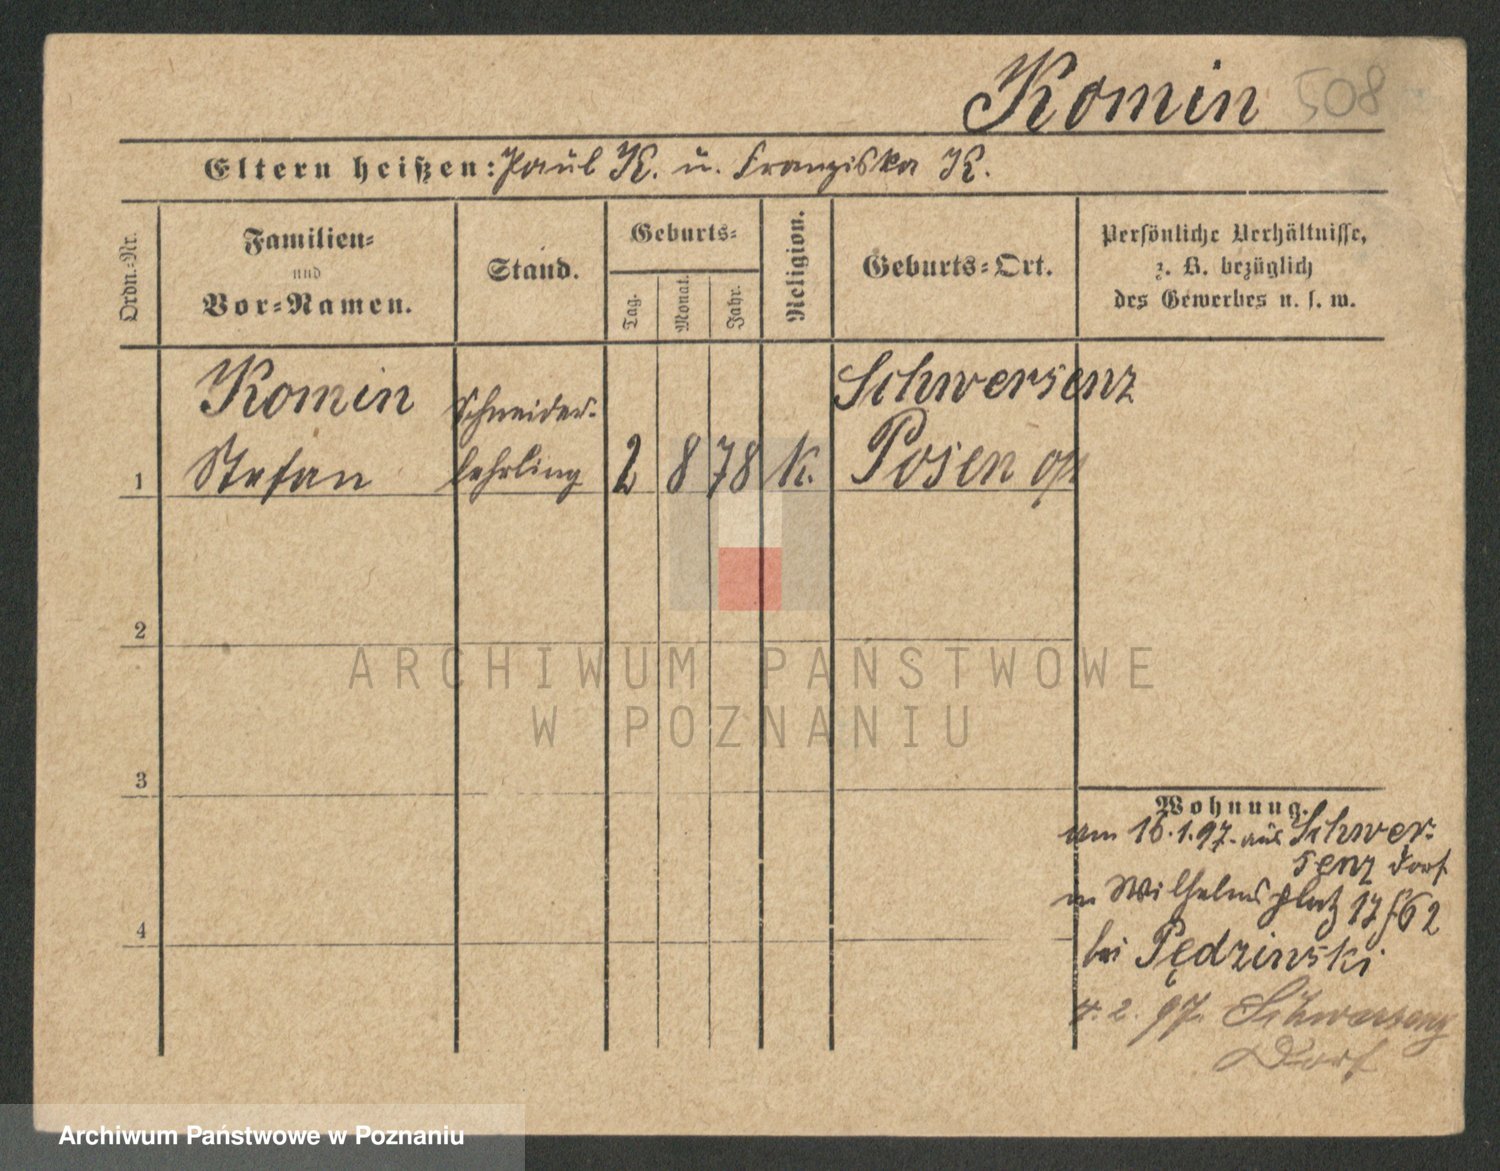 Komin 508
Eltern heißen: Paul K. u. Franziska K.
Ordn.-Nr.
Familien-
und
Vor-Namen.
Stand.
Geburts-
Tag.
Monat.
Jahr.
Religion.
Geburts-Ort.
Persönliche Verhältnisse,
z. B. bezüglich
des Gewerbes u. s. w.
Komin Schneider- Schwersenz
1 Stefan lehrling 2 8 78 k. Posen
2
3
4
ARCHIWUM PAŃSTWOWE
W POZNANIU
Wohnung.
am 16.1.97. aus Schwer-
senz Dorf
Wilhelmsplatz 17
bei Pędzinski
4. 2. 97. Schwersenz
Dorf
Archiwum Państwowe w Poznaniu